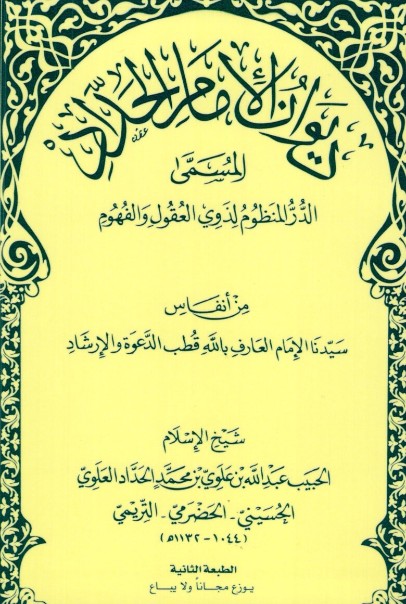 ديوان الإمام الحداد
المُسَمَّىٰ
الدُّرُّ المنظُومُ لِذَوِي العُقُولِ وَالفُهُومِ
مِنْ أنفَاسِ
سَيّدنَا الإمَام العَارِف بِاللهِ قُطبِ الدَّعوَة وَالإرشَادِ
شَيخ الإسلَام
الحَبيب عَبْد الله بن عَلوي بن محَمَّدٍ الحَدَّاد العَلَوي
الحُسَيْنيّ - الحَضْرَمي - التِّريْمي
(١٠٤٤ - ١١٣٢ه)
الطبعة الثانية
يوزع مجاناً ولا يباع